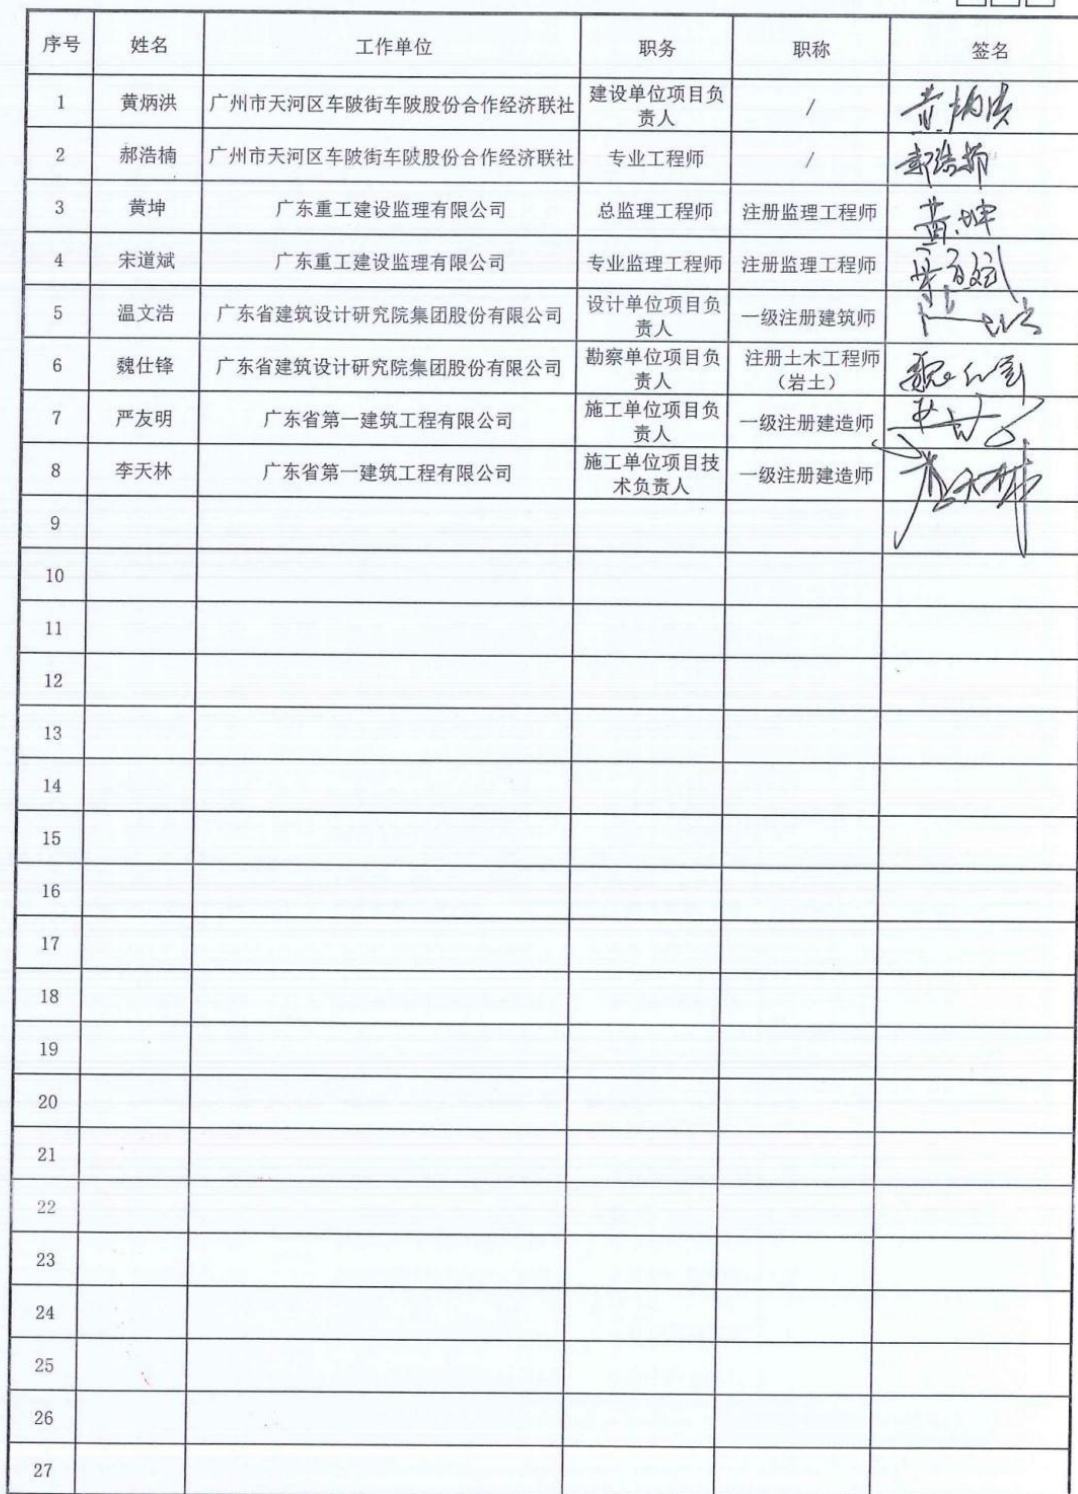 序号 姓名 工作单位 职务 职称 签名
1 黄炳洪 广州市天河区车陂街车陂股份合作经济联社 建设单位项目负责人 / 黄炳洪
2 郝浩楠 广州市天河区车陂街车陂股份合作经济联社 专业工程师 / 郝浩楠
3 黄坤 广东重工建设监理有限公司 总监理工程师 注册监理工程师 黄坤
4 宋道斌 广东重工建设监理有限公司 专业监理工程师 注册监理工程师
5 温文浩 广东省建筑设计研究院集团股份有限公司 设计单位项目负责人 一级注册建筑师
6 魏仕锋 广东省建筑设计研究院集团股份有限公司 勘察单位项目负责人 注册土木工程师（岩土）
7 严友明 广东省第一建筑工程有限公司 施工单位项目负责人 一级注册建造师
8 李天林 广东省第一建筑工程有限公司 施工单位项目技术负责人 一级注册建造师
9
10
11
12
13
14
15
16
17
18
19
20
21
22
23
24
25
26
27